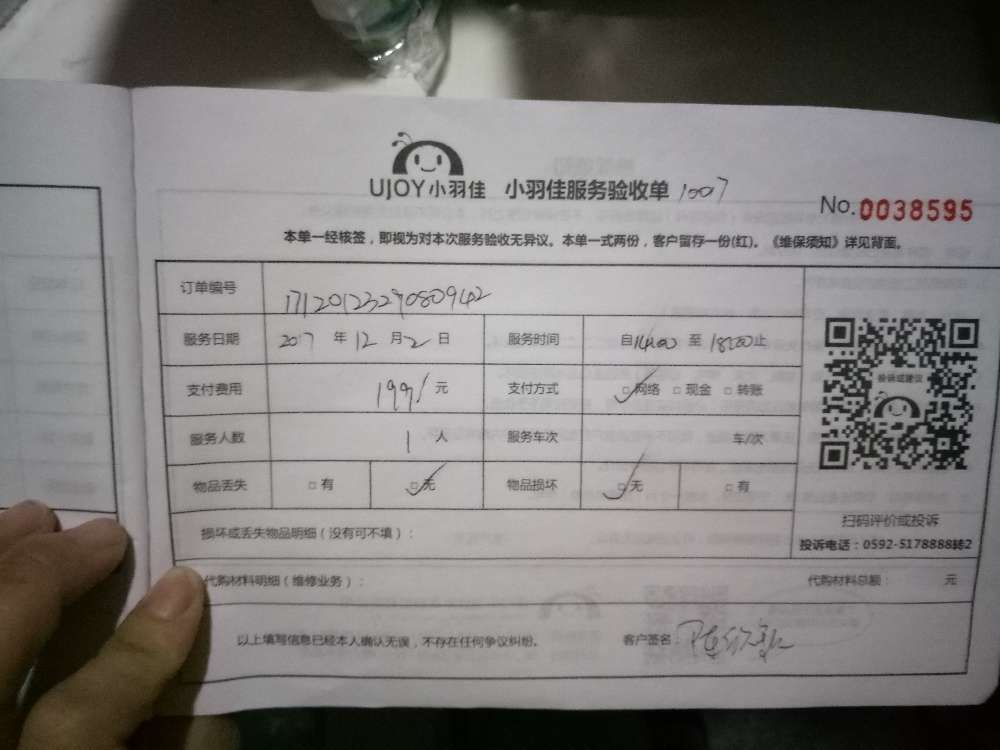 UJOY小羽佳 小羽佳服务验收单 1007
No.0038595
本单一经核签，即视为对本次服务验收无异议。本单一式两份，客户留存一份(红)。《维保须知》详见背面。
订单编号 1712012329080942
服务日期 2017 年 12 月 2 日 服务时间 自14:00 至 18:00止
支付费用 199 元 支付方式 □网络 □现金 □转账
服务人数 1 人 服务车次 车/次
物品丢失 □有 □无 物品损坏 □无 □有
投诉或建议
扫码评价或投诉
投诉电话：0592-5178888转2
损坏或丢失物品明细（没有可不填）：
代购材料明细（维修业务）： 代购材料总额： 元
以上填写信息已经本人确认无误，不存在任何争议纠纷。 客户签名：